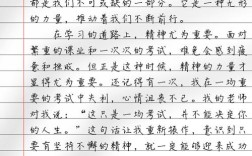 都是我们不可或缺的一部分。它是一种无形
的力量，推动着我们不断前行。
在学习的道路上，精神尤为重要。面对
繁重的课业和一次次的考试，难免会感到疲
惫和挫败。但正是这种时候，精神的力量才
显得尤为重要。还记得有一次，我在一场重
要的考试中失利，心情沮丧不已。我的老师
对我说：“这只是一场考试，并不能决定你
的人生。”这句话让我重新振作，意识到只
要有坚持不懈的精神，就一定能够迎来成功